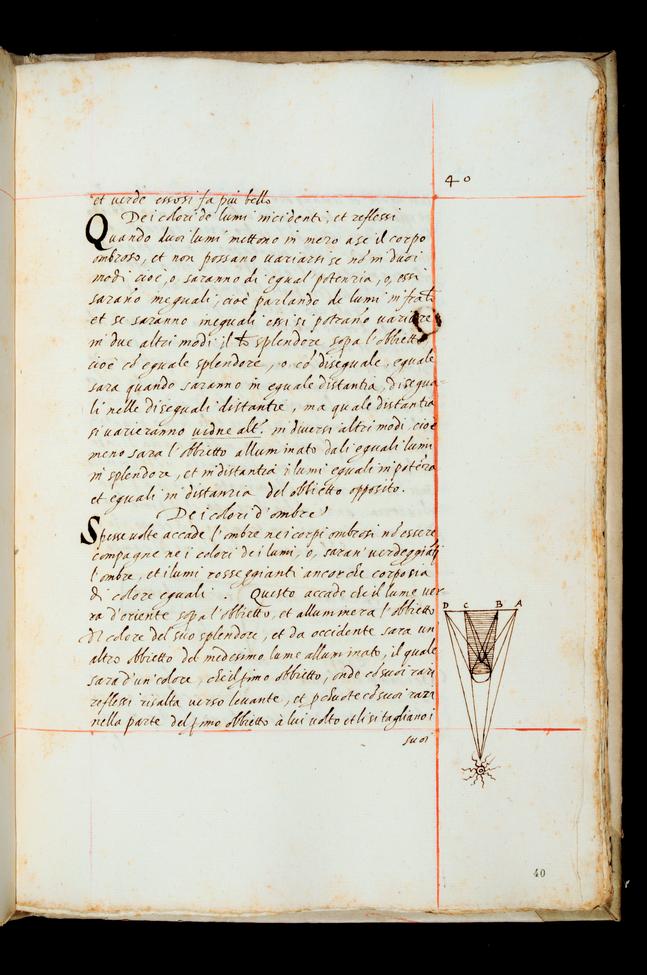 40
et verde essosi fa piu bello
De i colori de lumi incidenti, et reflessi
Quando duoi lumi mettono in mezo a se il corpo
ombroso, et non possano variarsi se nō in duoi
modi cioè, o saranno di egual' potenzia, o, essi
sarano ineguali, cioè parlando de lumi infra
et se saranno ineguali essi si potrano variare
in due altri modi il splendore sopa l'obbietto
cioè cō eguale splendore, o cō disequale, eguale
sara quando saranno in eguale distantia, disequa-
li nelle disequali distantie, ma quale distantia
si varieranno in diversi altri modi, cioè
meno sara l'obbietto alluminato dali eguali lumi
in splendore, et in distantia i lumi eguali in potēza
et eguali in distanzia del obbietto opposito.
De i colori d'ombre
Spesse volte accade l'ombre ne i corpi ombrosi nō essere
compagne ne i colori de i lumi, o, saran' verdeggiāti
l'ombre, et i lumi rosseggianti ancor che corpo sia
di colore eguali. Questo accade che il lume ver-
ra d'oriente sopa l'obbietto, et alluminera l'obbietto
di colore del suo splendore, et da occidente sara un
altro obbietto del medesimo lume alluminato, il quale
sara d'un' colore, che il pimo obbietto, onde cō suoi razi
reflessi risalta verso levante, et pcuote cō suoi razi
nella parte del pimo obbietto à lui volto et li si tagliano i
suoi
D C B A
40